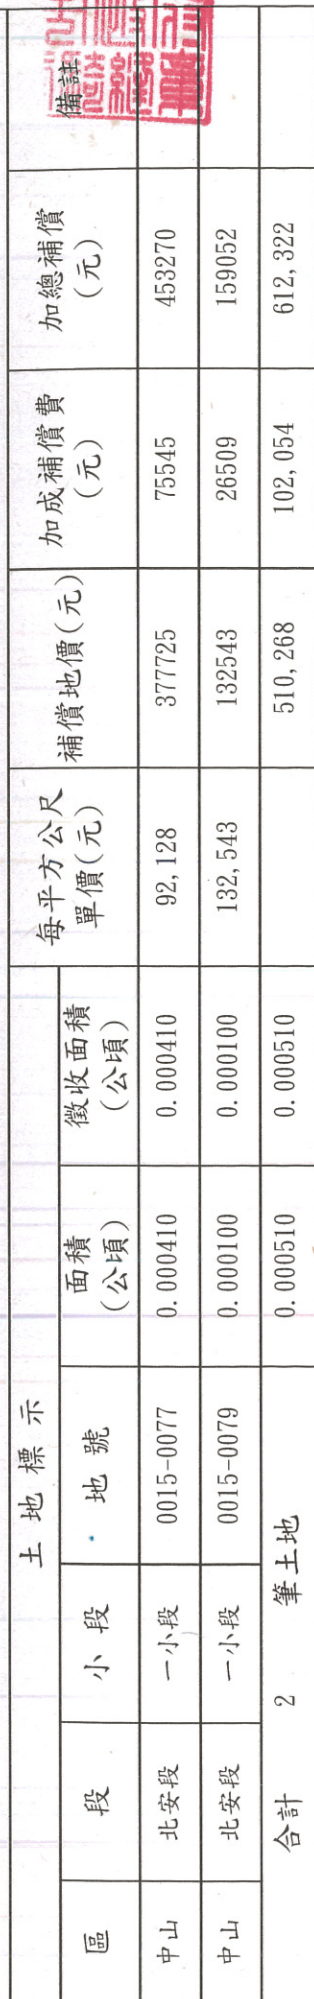 土地標示
區 段 小段 地號 面積(公頃) 徵收面積(公頃) 每平方公尺單價(元) 補償地價(元) 加成補償費(元) 加總補償(元) 備註
中山 北安段 一小段 0015-0077 0.000410 0.000410 92,128 377725 75545 453270
中山 北安段 一小段 0015-0079 0.000100 0.000100 132,543 132543 26509 159052
合計 2 筆土地 0.000510 0.000510 510,268 102,054 612,322